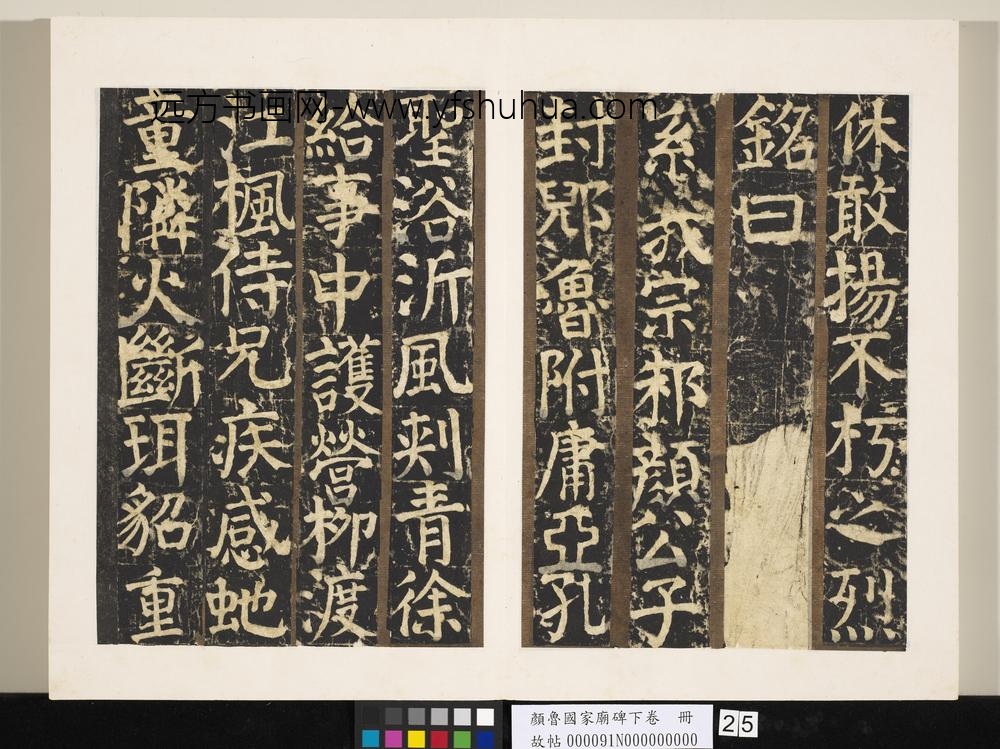 远方书画网-www.yfshuhua.com
休敢揚不朽之烈
銘曰
系我宗邾顏公子
封郳魯附庸亞孔
聖浴沂風剌青徐
給事中護營柳渡
江楓侍兄疾感虵
童隣火斷珥貂重
顏魯國家廟碑下卷 冊
故帖 000091N000000000
25